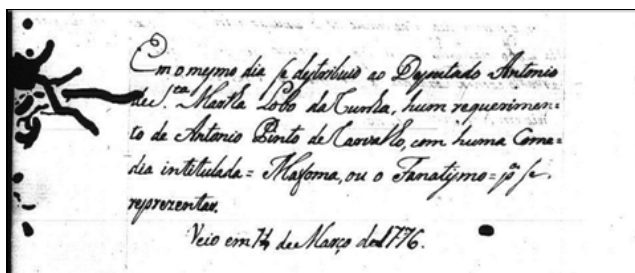 Em o mesmo dia se destribuio ao Deputado Antonio
de S.ta Martha Lobo da Cunha, hum requerimen=
to de Antonio Pinto de Carvalho, com huma Come=
dia intitulada = Mafoma, ou o Fanatismo = p.a se
reprezentar.
Veio em de Março de 1776.